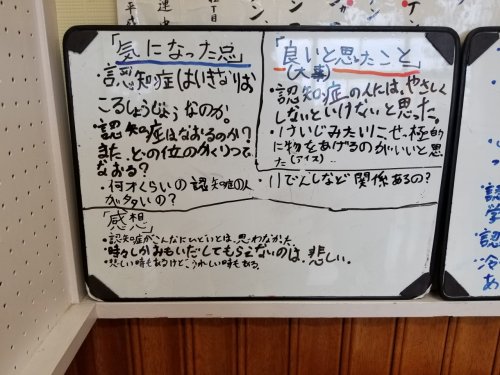 「気になった点」
・認知症はいきなりお
こるしょうじょうなのか。
・認知症はなおるのか?
また、どの位のかくりつで
なおる?
・何才くらいの認知症の人
が多いの?
「良いと思ったこと」
(大事)
・認知症の人には、やさしく
しないといけないと思った。
に物をあげるのがいいと思
た(アイス)..
・いでんしなど関係あるの?
「感想」
・認知症がこんなにひどいとは、思わなかった。
・時々しかおもいだしてもらえないのは、悲しい。
・悲しい時もあるけど、うれしい時もある。